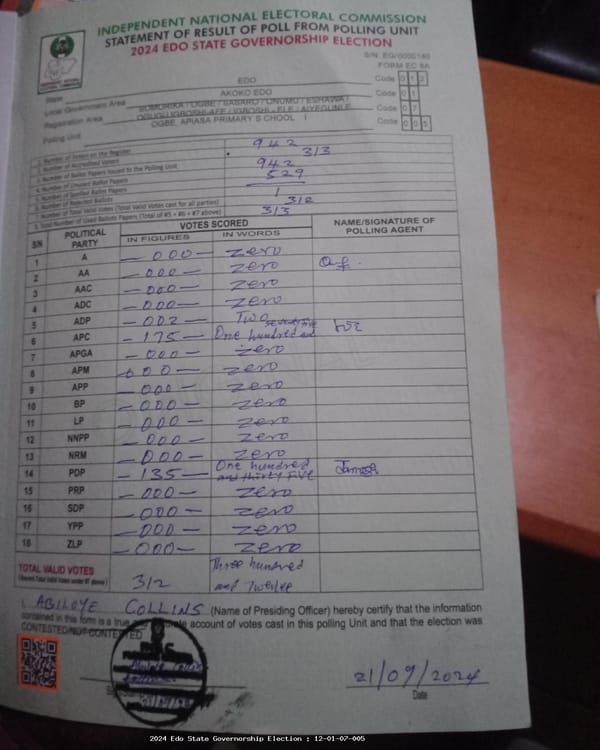 INDEPENDENT NATIONAL ELECTORAL COMMISSION
STATEMENT OF RESULT OF POLL FROM POLLING UNIT
2024 EDO STATE GOVERNORSHIP ELECTION
S/N: EG/0000140
FORM EC 8A
State EDO Code 0 1 2
Local Government Area AKOKO EDO Code 0 1
Registration Area Code 0 7
Polling Unit OGBE, APIASA PRIMARY SCHOOL I Code 0 0 5
1. Number of Voters on the Register 942
2. Number of Accredited Voters 313
3. Number of Ballot Papers Issued to the Polling Unit 942
4. Number of Unused Ballot Papers 529
5. Number of Spoiled Ballot Papers
6. Number of Rejected Ballots 1
7. Number of Total Valid Votes (Total Valid Votes cast for all parties) 312
8. Total Number of Used Ballots Papers (Total of #5 + #6 + #7 above) 313
S/N POLITICAL PARTY VOTES SCORED NAME/SIGNATURE OF POLLING AGENT
IN FIGURES IN WORDS
1 A 000 Zero
2 AA 000 Zero
3 AAC 000 Zero
4 ADC 000 Zero
5 ADP 002 Two
6 APC 175 One hundred and seventy five
7 APGA 000 Zero
8 APM 000 Zero
9 APP 000 Zero
10 BP 000 Zero
11 LP 000 Zero
12 NNPP 000 Zero
13 NRM 000 Zero
14 PDP 135 One hundred and thirty Five
15 PRP 000 Zero
16 SDP 000 Zero
17 YPP 000 Zero
18 ZLP 000 Zero
TOTAL VALID VOTES 312 Three hundred and Twelve
I, ABILOYE COLLINS (Name of Presiding Officer) hereby certify that the information
contained in this form is a true account of votes cast in this polling Unit and that the election was
CONTESTED/NOT CONTESTED
21/09/2024
Date
2024 Edo State Governorship Election : 12-01-07-005